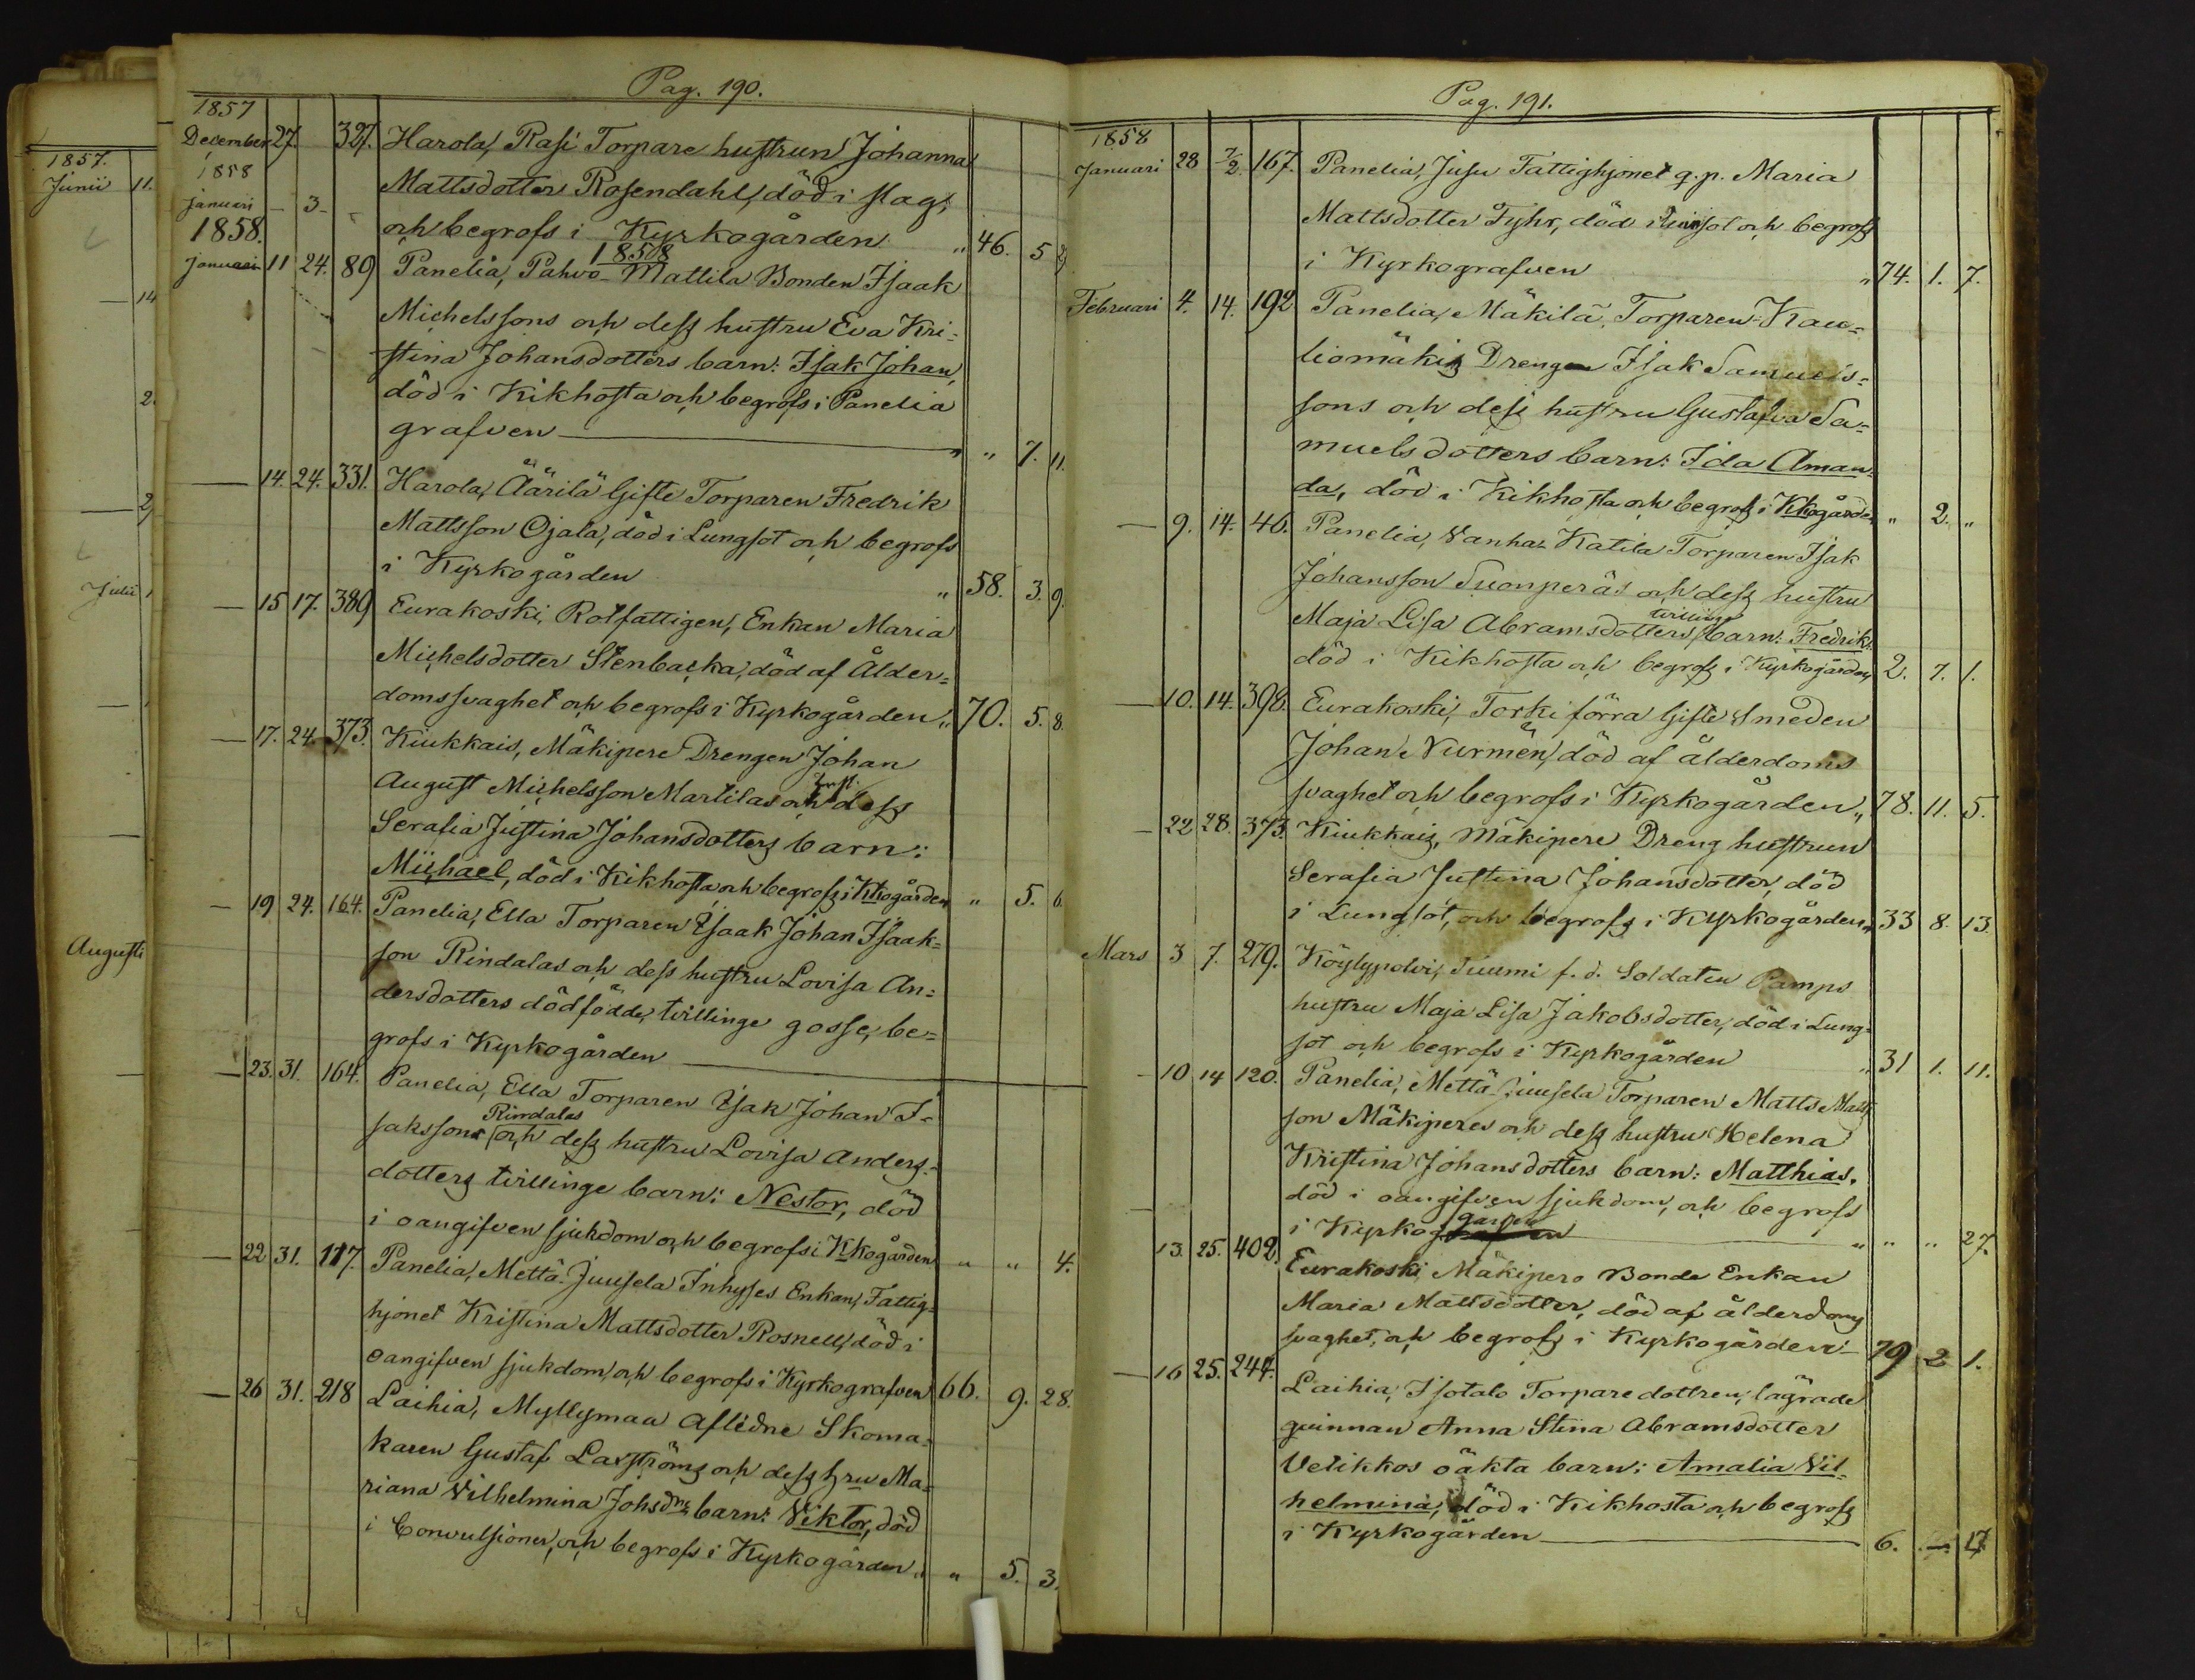 1857.
Junii 11.
14
2.
2
Julii
Augusti
Pag. 190.
1857
December 27. 327. Harola, Rasi Torpare hustrun Johanna
1858
Mattsdotter Rosendahl, död i slag,
Januari - 3 -
och begrofs i Kyrkogården " 46. 5 2
1858.
1858
Januari 11 24. 89 Panelia, Pahvo-Mattila Bonden Isaak
Michelssons och dess hustru Eva Kri=
stina Johansdotters barn: Isak Johan,
död i Kikhosta och begrofs i Panelia
grafven " 7. 11.
— 14. 24. 331. Harola, Äärilä Gifte Torparen Fredrik
Mattsson Ojala, död i Lungsot och begrofs
i Kyrkogården " 58. 3. 9.
— 15 17. 389 Eurakoski, Rotfattigen, Enkan Maria
Michelsdotter Stenbacka, död af Ålder=
domssvaghet och begrofs i Kyrkogården " 70. 5. 8.
— 17. 24. 373. Kiukkais, Mäkipere Drengen Johan
August Michelsson Martilas och dess
Serafia Justina Johansdotters barn:
Michael, död i Kikhosta och begrofs i Kkogården " 5. 6
— 19 24. 164. Panelia, Ella Torparen Isaak Johan Isaak=
son Rindalas och dess hustru Lovisa An=
dersdotters dödfödde, tvillinge gosse, be=
grofs i Kyrkogården
— 23. 31. 164. Panelia, Ella Torparen Isak Johan I=
Rindalas
saksson och dess hustru Lovisa Anders=
dotters tvillinge barn: Nestor, död
i oangifven sjukdom och begrofs i Kkogården " " 4.
— 22 31. 117. Panelia, Mettä-Juusela Inhyses Enkan, Fattig=
hjonet Kristina Mattsdotter Rosnell, död i
oangifven sjukdom, och begrofs i Kyrkografven 66. 9. 28.
— 26 31. 218 Laihia, Myllymaa Aflidne Skoma=
karen Gustaf Laxströms och dess hru Ma=
riana Vilhelmina Johsdrs barn: Viktor, död
i Convulsioner, och begrofs i Kyrkogården " " 5. 3.
Pag. 191.
1858
Januari 28 7/2. 167. Panelia, Jusu Fattighjonet q.p. Maria
Mattsdotter Fyhr, död i Lungsot och begrofs
i Kyrkografven " 74. 1. 7.
Februari 4. 14. 192 Panelia, Mäkilä, Torparen Kau=
liomäkis Drengen Isak Samuels=
sons och dess hustru Gustafva Sa=
muelsdotters barn: Ida Aman=
da, död i Kikhosta och begrofs i Kkogården " 2. "
— 9. 14. 46. Panelia, Vanha-Katila Torparen Isak
Johansson Suonperäs och dess hustru
tvillinge
Maja Lisa Abramsdotters barn: Fredrik,
död i Kikhosta och begrofs i Kyrkogården 2. 7. 1.
— 10. 14. 398. Eurakoski, Torki förra Gifte Smeden
Johan Nurmén, död af ålderdoms
svaghet och begrofs i Kyrkogården " 78. 11. 5.
— 22 28. 373. Kiukkais, Mäkipere Dreng hustrun
Serafia Justina Johansdotter, död
i Lungsot, och begrofs i Kyrkogården " 33 8. 13.
Mars 3 7. 279. Köylypolvi, Tuumi f.d. Soldaten Pamps
hustru Maja Lisa Jakobsdotter, död i Lung=
sot och begrofs i Kyrkogården " 31 1. 11.
— 10 14 120. Panelia, Mettä-Juusela Torparen Matts Matts
son Mäkiperes och dess hustru Helena
Kristina Johansdotters barn: Matthias,
död i oangifven sjukdom, och begrofs
gården
i Kyrko " " " 27.
— 13. 25. 402. Eurakoski Mäkipere Bonde Enkan
Maria Mattsdotter, död af ålderdoms
svaghet, och begrofs i Kyrkogården — 79 2 1.
— 16 25. 244. Laihia, Isotalo Torpare dottren, lägrade
quinnan Anna Stina Abramsdotter
Velikkos oäkta barn: Amalia Vil=
helmina, död i Kikhosta och begrofs
i Kyrkogården 6. — 17